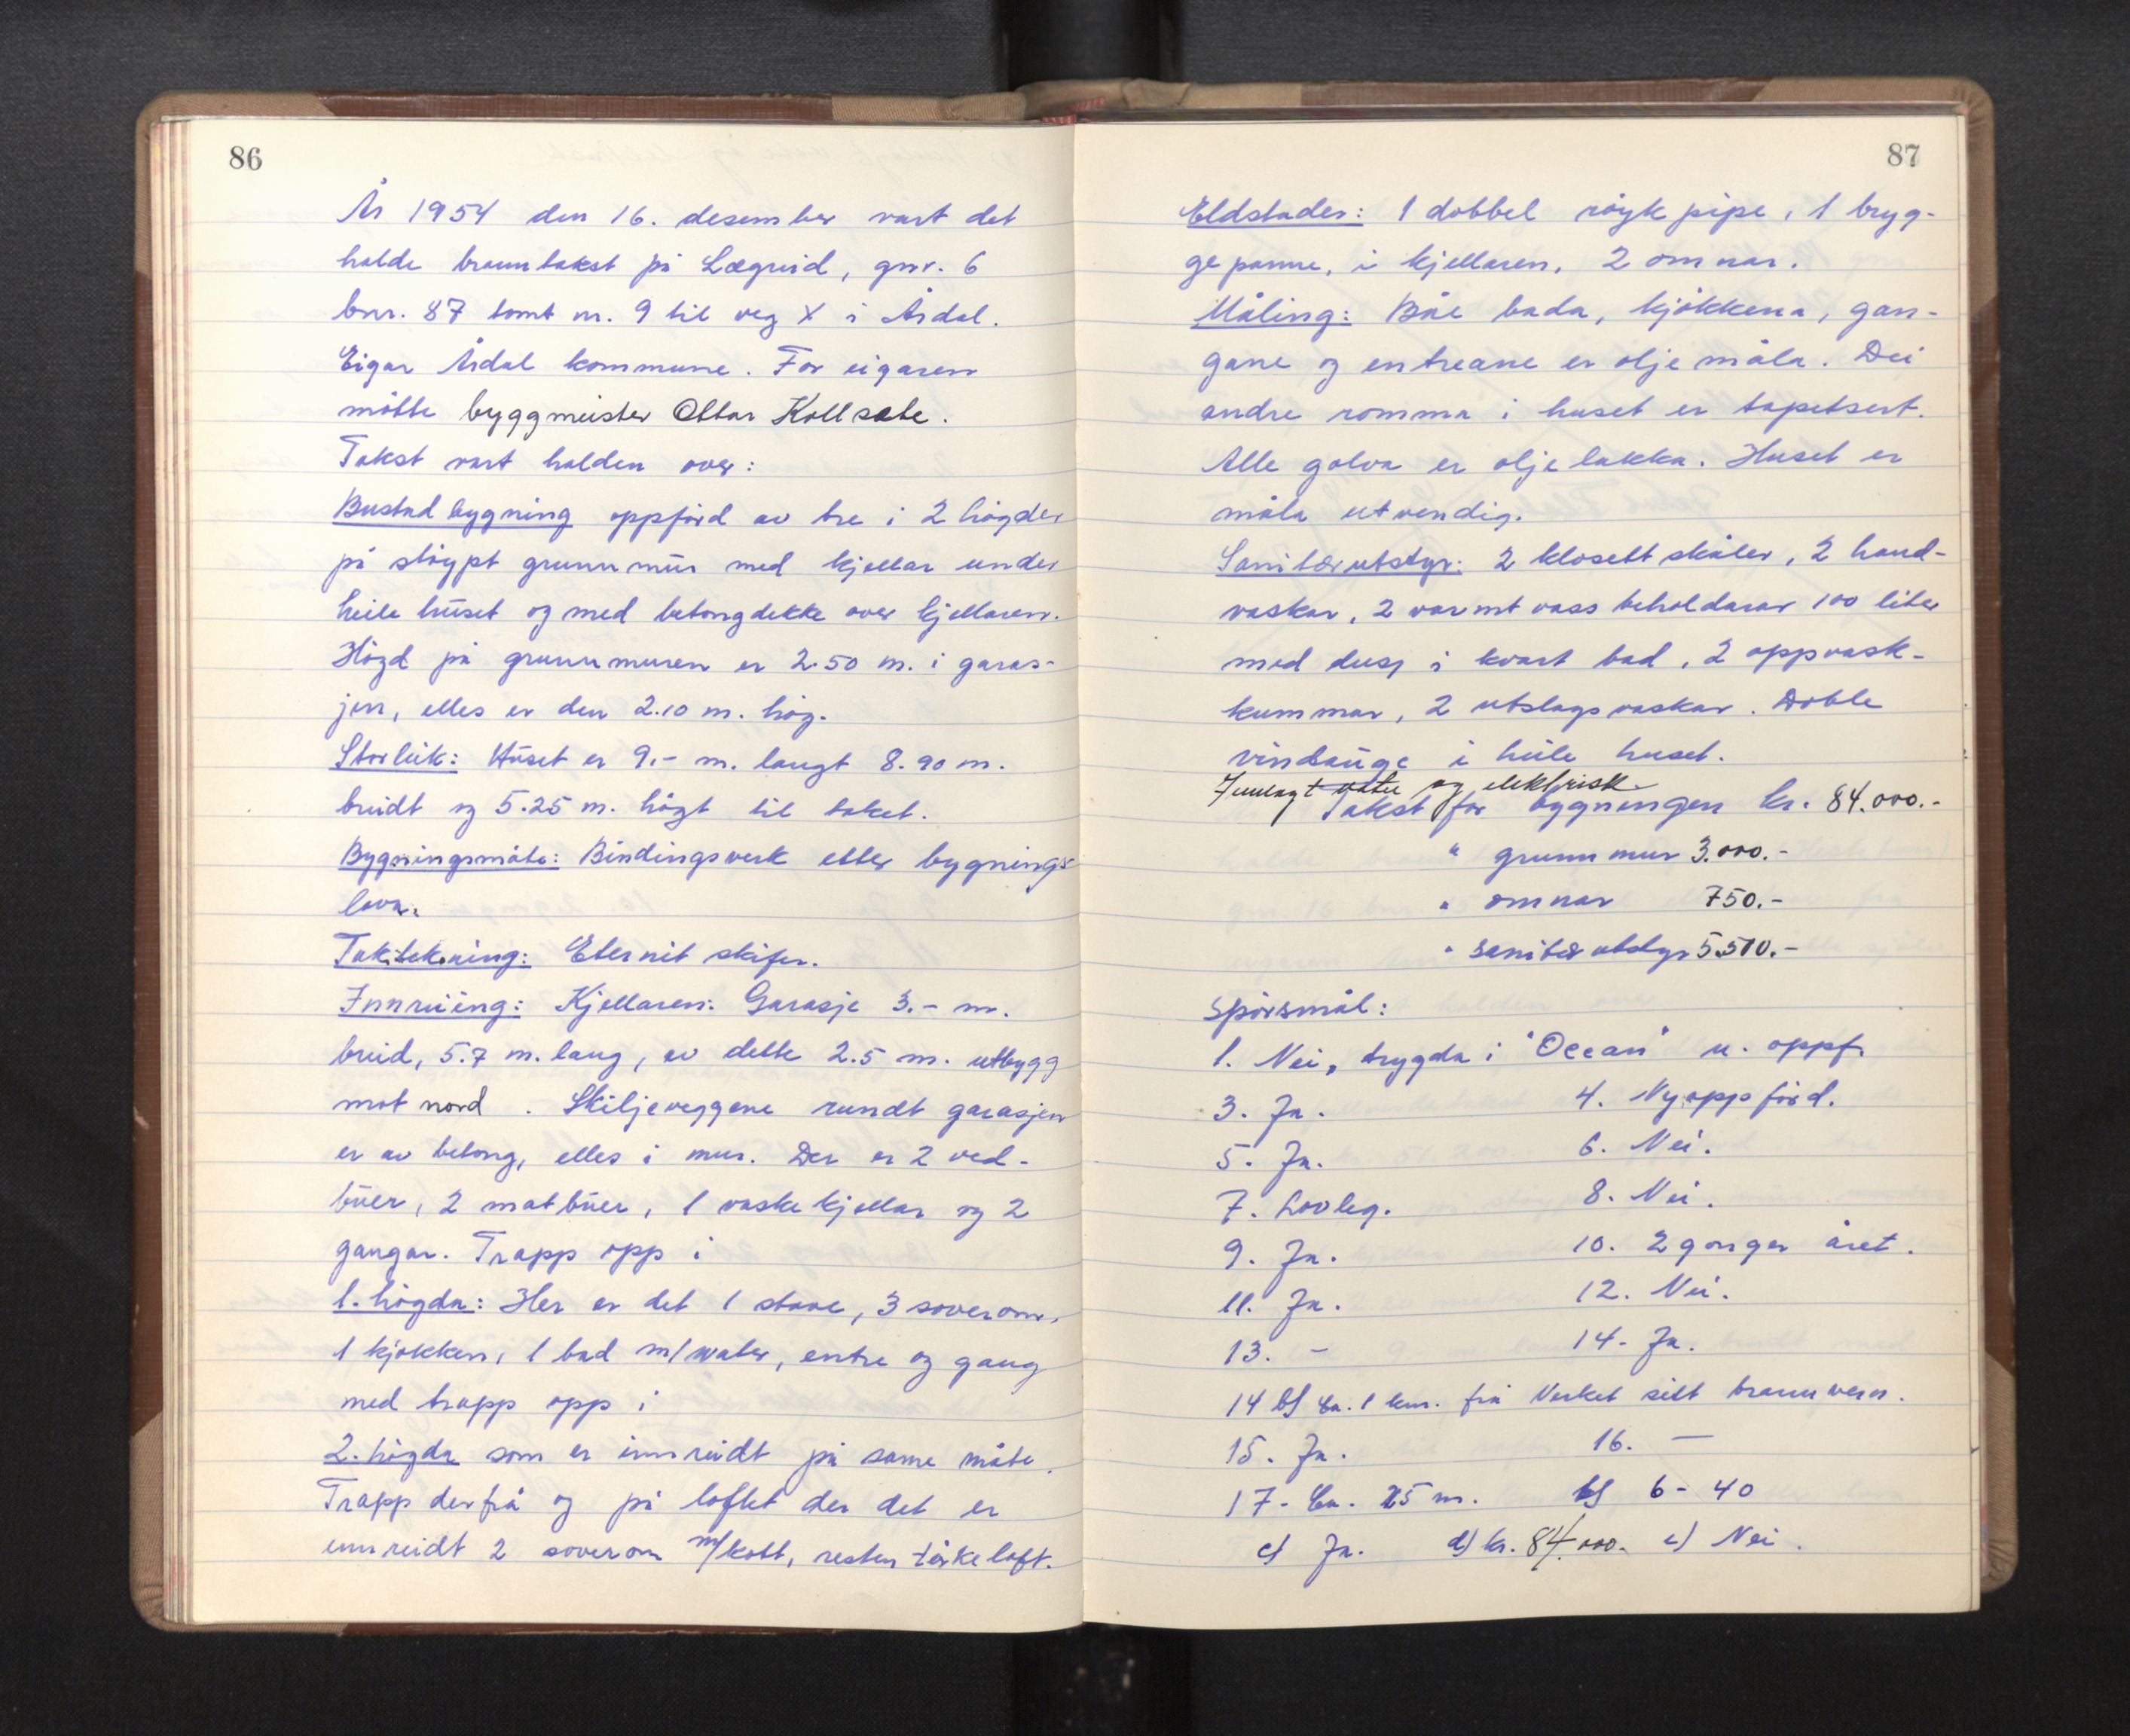 86
År 1954 den 16. desember vart det
halde branntakst på Lægreid, gnr. 6
bnr. 87 tomt nr. 9 til veg X i Årdal.
Eigar Årdal kommune. For eigaren
møtte byggmeister Ottar Kollsete.
Takst vart halden over:
Bustadbygning oppførd av tre i 2 høgder
på støypt grunnmur med kjellar under
heile huset og med betongdekke over kjellaren.
Høgd på grunnmuren er 2.50 m. i garas-
jen, elles er den 2.10 m. høg.
Storleik: Huset er 9.- m. langt 8.90 m.
breidt og 5.25 m. høgt til taket.
Bygningsmåte: Bindingsverk etter bygnings-
lova.
Taktekning: Eternit skifer.
Innreiing: Kjellaren: Garasje 3.- m.
breid, 5.7 m. lang, av dette 2.5 m. utbygg
mot nord. Skiljeveggene rundt garasjen
er av betong, elles i mur. Der er 2 ved-
buer, 2 matbuer, 1 vaskekjellar og 2
gangar. Trapp opp i
1. høgda: Her er det 1 stove, 3 soverom,
1 kjøkken, 1 bad m/water, entre og gang
med trapp opp i
2. høgda som er innreidt på same måte.
Trapp derfrå og på loftet der det er
innreidt 2 soverom m/kott, resten tørkeloft.
87
Eldstader: 1 dobbel røykpipe, 1 bryg-
gepanne, i kjellaren, 2 omnar.
Måling: Båe bada, kjøkkena, gan-
gane og entreane er oljemåla. Dei
andre romma i huset er tapetsert.
Alle golva er oljelakka. Huset er
måla utvendig.
Sanitærutstyr: 2 klosettskåler, 2 hand-
vaskar, 2 varmtvassbeholdarar 100 liter
med dusj i kvart bad, 2 oppvask-
kummar, 2 utslagsvaskar. Doble
vindauge i heile huset.
Innlagt vatn og elektrisk
Takst for bygningen kr. 84.000.-
" grunnmur 3.000.-
" omnar 750.-
" sanitærutstyr 5.510.-
Spørsmål:
1. Nei, trygda i "Ocean" u. oppf.
3. Ja. 4. Nyoppførd.
5. Ja. 6. Nei.
7. Lovleg. 8. Nei.
9. Ja. 10. 2 gonger året.
11. Ja. 12. Nei.
13. - 14. Ja.
14 b) Ca. 1 km. frå Verket sitt brannvern.
15. Ja. 16. —
17. Ca. 15 m. b) 6 - 40
c) Ja. d) kr. 84.000.- e) Nei.